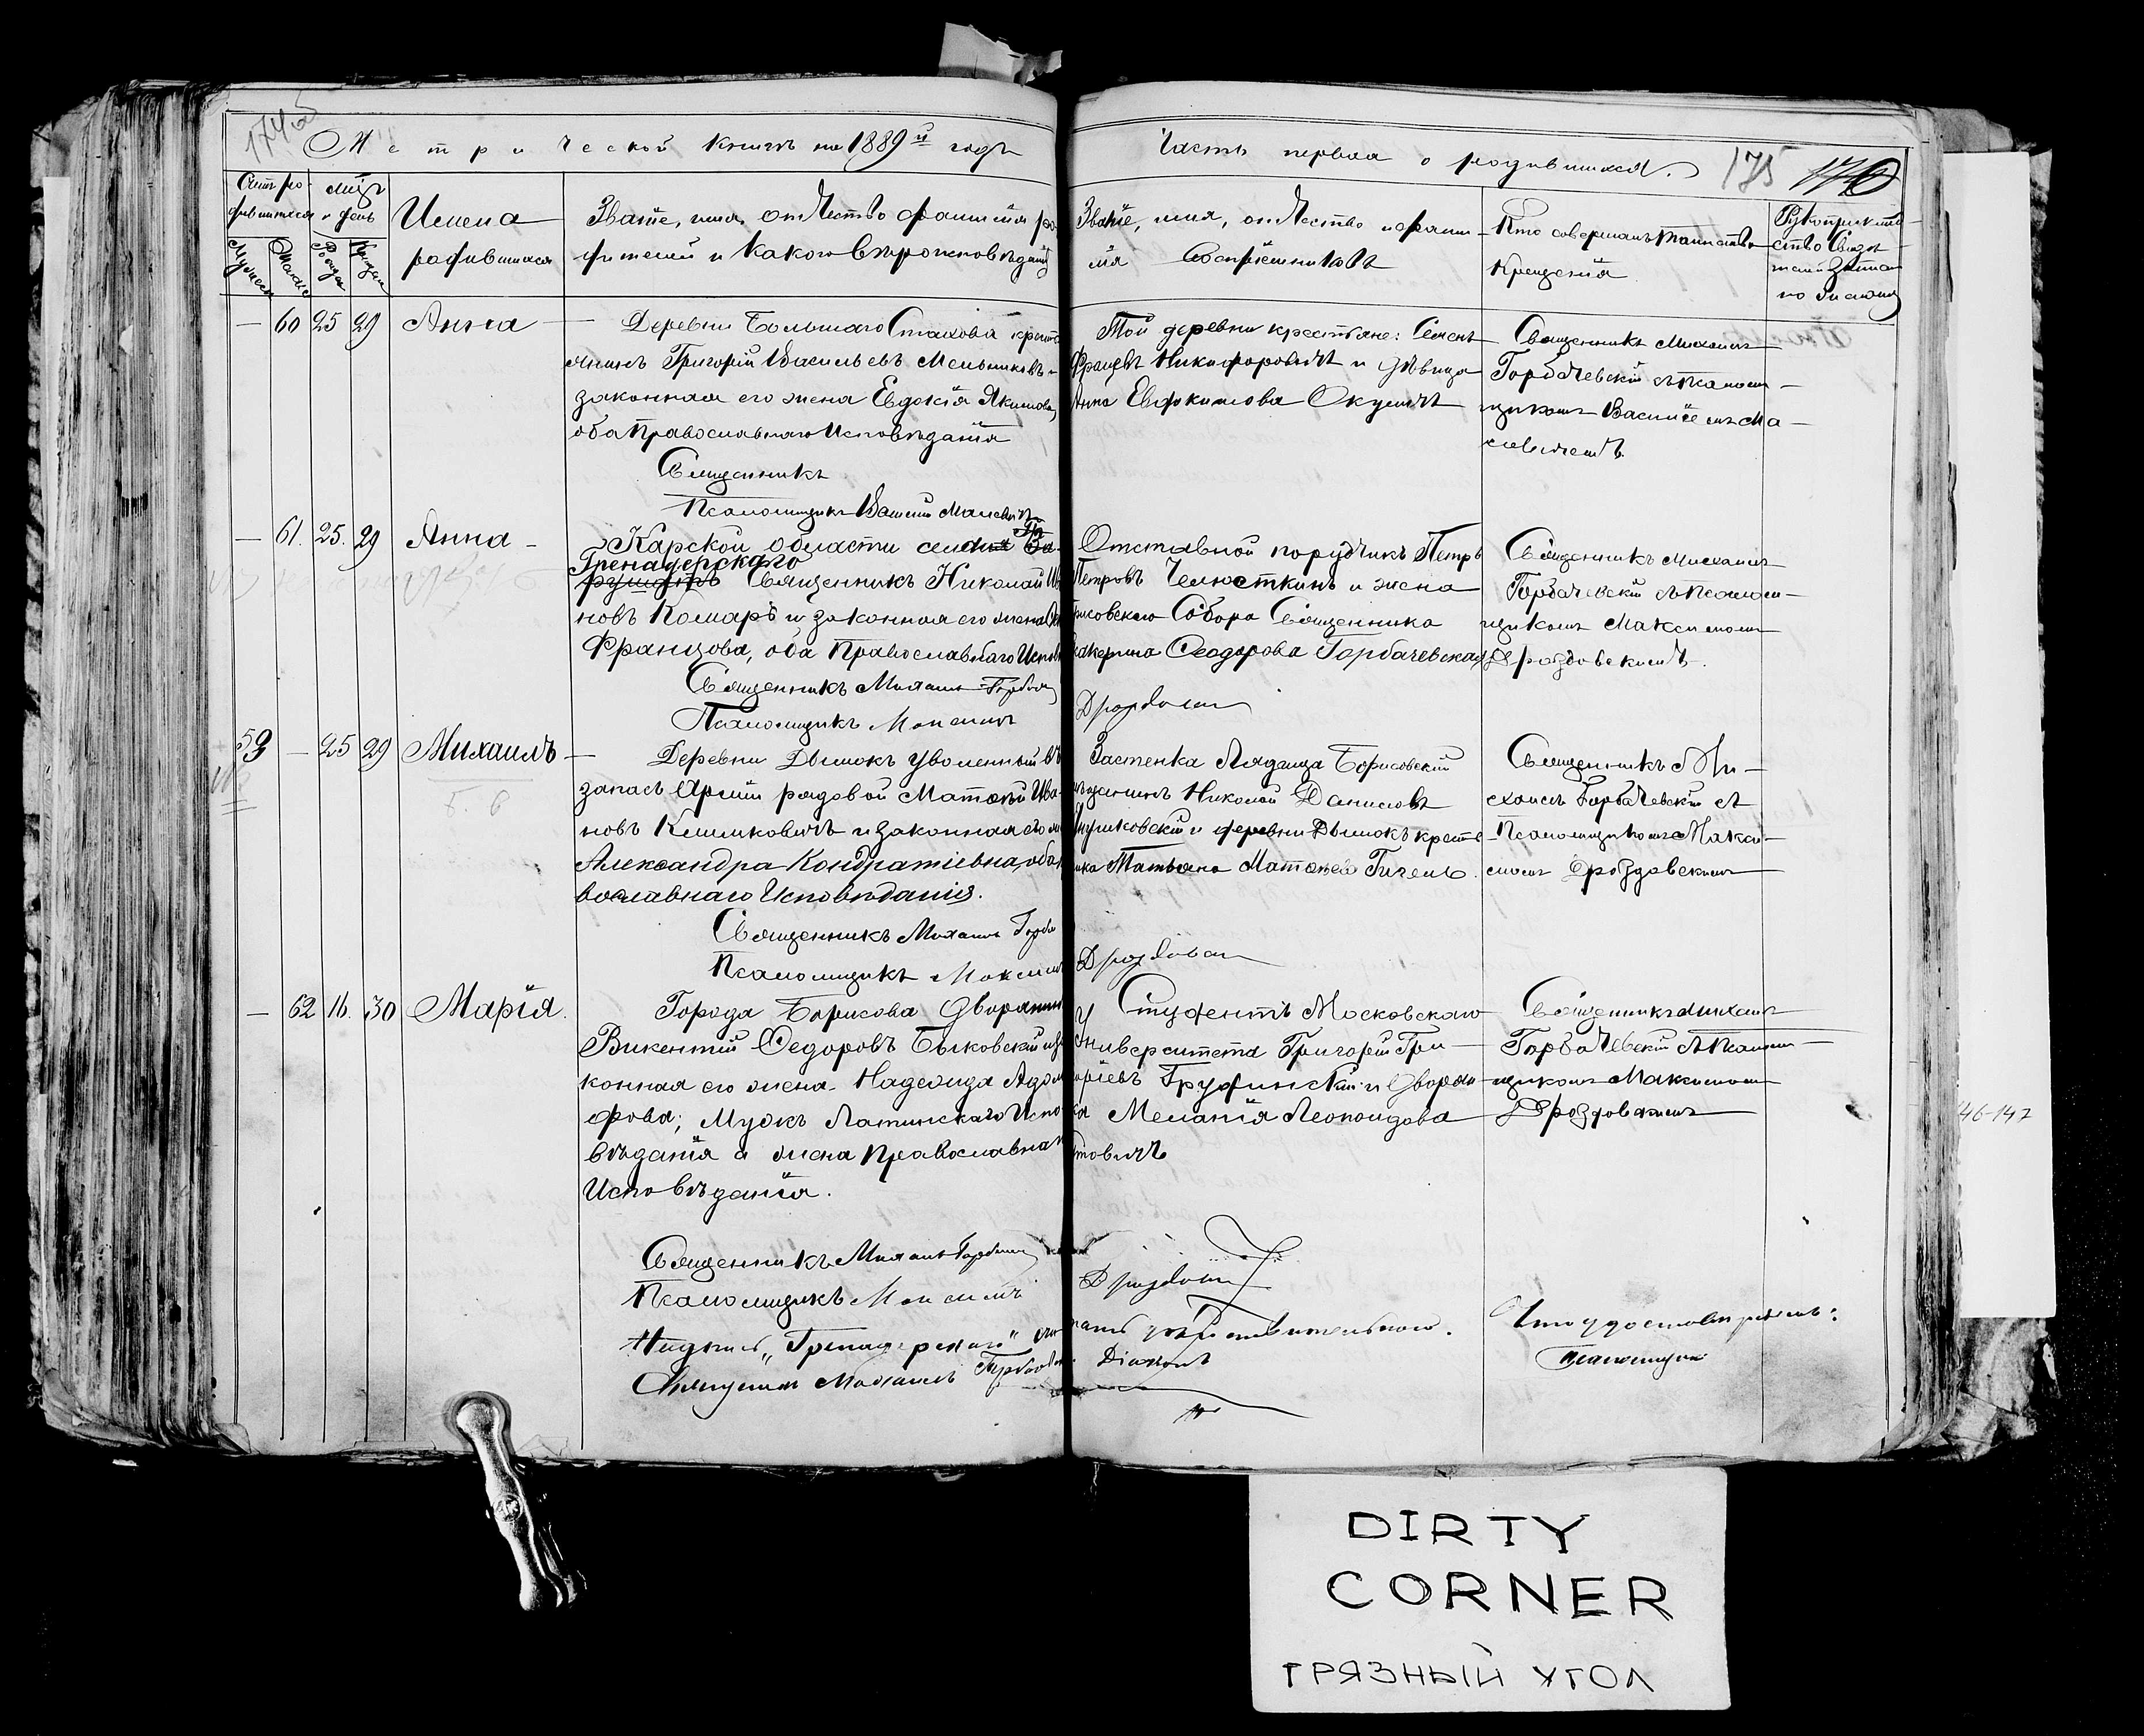 Метрической книги на 1889й годъ
Часть первая о родившихся.
175
176
Счетъ ро-
дившихся
Мѣсяцъ
и день
Имена
родившихся
Званіе, имя, отчество фамилія ро-
дителей и какого вѣроисповѣданія
Званіе, имя, отчество и фами-
лія Воспріемниковъ
Кто совершалъ таинство
Крещенія
Рукоприклад-
ство свидѣ-
телей записи
по желанію
— 60 25 29 Анна —
Деревни Большаго Стахова кресть
янинъ Григорій Васильевъ Мельниковъ и
законная его жена Евдокія Якимова,
оба Православнаго Исповѣданія
Священникъ
Псаломщикъ Василій Масевичъ
Той деревни крестьяне: Семенъ
Никифоровичъ и дѣвица
Анна Евдокимова Окуличъ
Священникъ Михаилъ
Горбачевскій съ псалом-
щикомъ Василіемъ Ма-
севичемъ
— 61. 25. 29 Анна —
Карской области
Гренадерскаго
Священникъ Николай Ива
новъ Комаръ и законная его жена
Францова, оба Православнаго Исповѣ
Священникъ Михаилъ Горбач
Псаломщикъ Максимъ
Отставной поручикъ Петръ
Петровъ Челюсткинъ и жена
Борисовскаго Собора Священника
Екатерина Ѳеодорова Горбачевская
Дроздовскій
Священникъ Михаилъ
Горбачевскій съ Псалом-
щикомъ Максимомъ
Дроздовскимъ.
59 — 25 29 Михаилъ —
Деревни Дымокъ уволенный въ
запасъ Арміи рядовой Матвѣй Ива-
новъ Климковичъ и законная его ж
Александра Кондратіевна, оба
вославнаго Исповѣданія.
Священникъ Михаилъ Горба
Псаломщикъ Максимъ
Застенка Лядища Борисовскій
мѣщанинъ Николай Даниловъ
и деревни Дымокъ кресть
янка Татьяна Матвѣева Гичель.
Дроздовскій
Священникъ Ми-
хаилъ Горбачевскій съ
Псаломщикомъ Макси-
момъ Дроздовскимъ
— 62 16. 30 Марія.
Города Борисова Дворянинъ
Викентій Ѳедоровъ Быковскій и за
конная его жена Надежда Адоль
фова; Мужъ Латинскаго Испо
вѣданія а жена Православнаго
Исповѣданія.
Священникъ Михаилъ Горбачев
Псаломщикъ Максимъ
Студентъ Московскаго
Университета Григорій Гри-
горіевъ Грудинскій и Дворян
ка Меланія Леопольдова
товичъ
Дроздовскій
Священникъ Михаилъ
Горбачевскій съ Псалом-
щикомъ Максимомъ
Дроздовскимъ
Надпись „Гренадерскаго“ счи
тать дѣйствительною.
Что удостовѣряемъ:
Священникъ Михаилъ Горбачев
Діаконъ
Псаломщикъ
46-147
DIRTY
CORNER
ГРЯЗНЫЙ УГОЛ